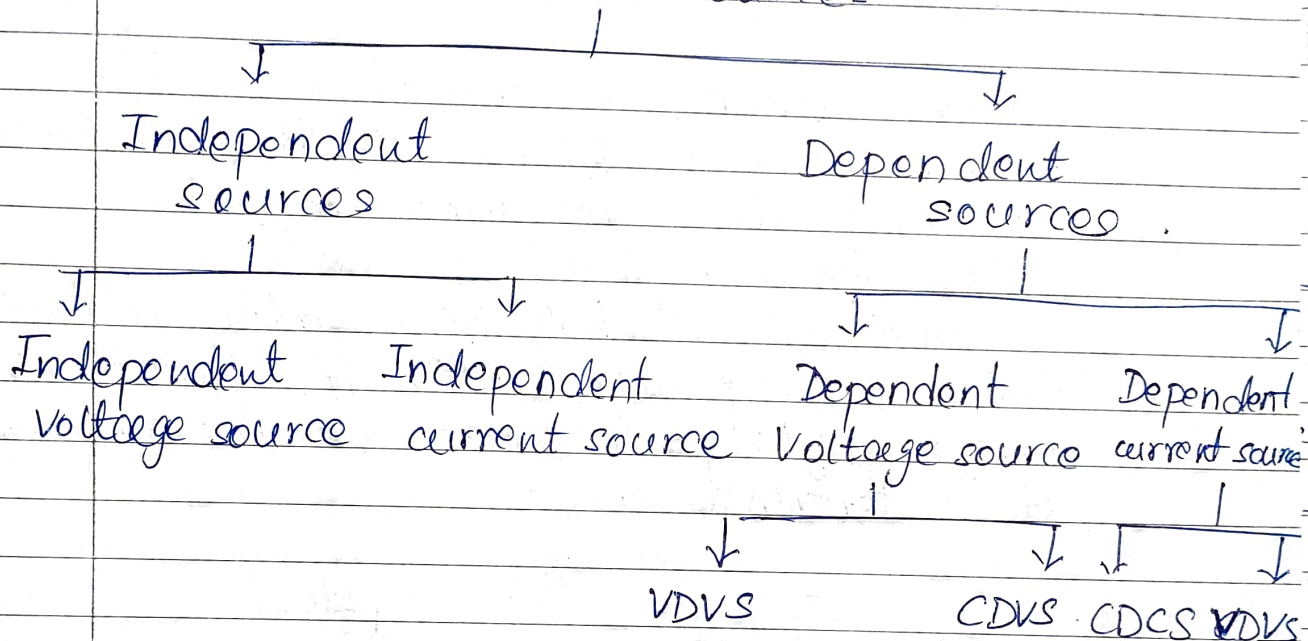 Independent
sources
Dependent
sources.
Independent
voltage source
Independent
current source
Dependent
Voltage source
Dependent
current source
VDVS
CDVS
CDCS
VDVS